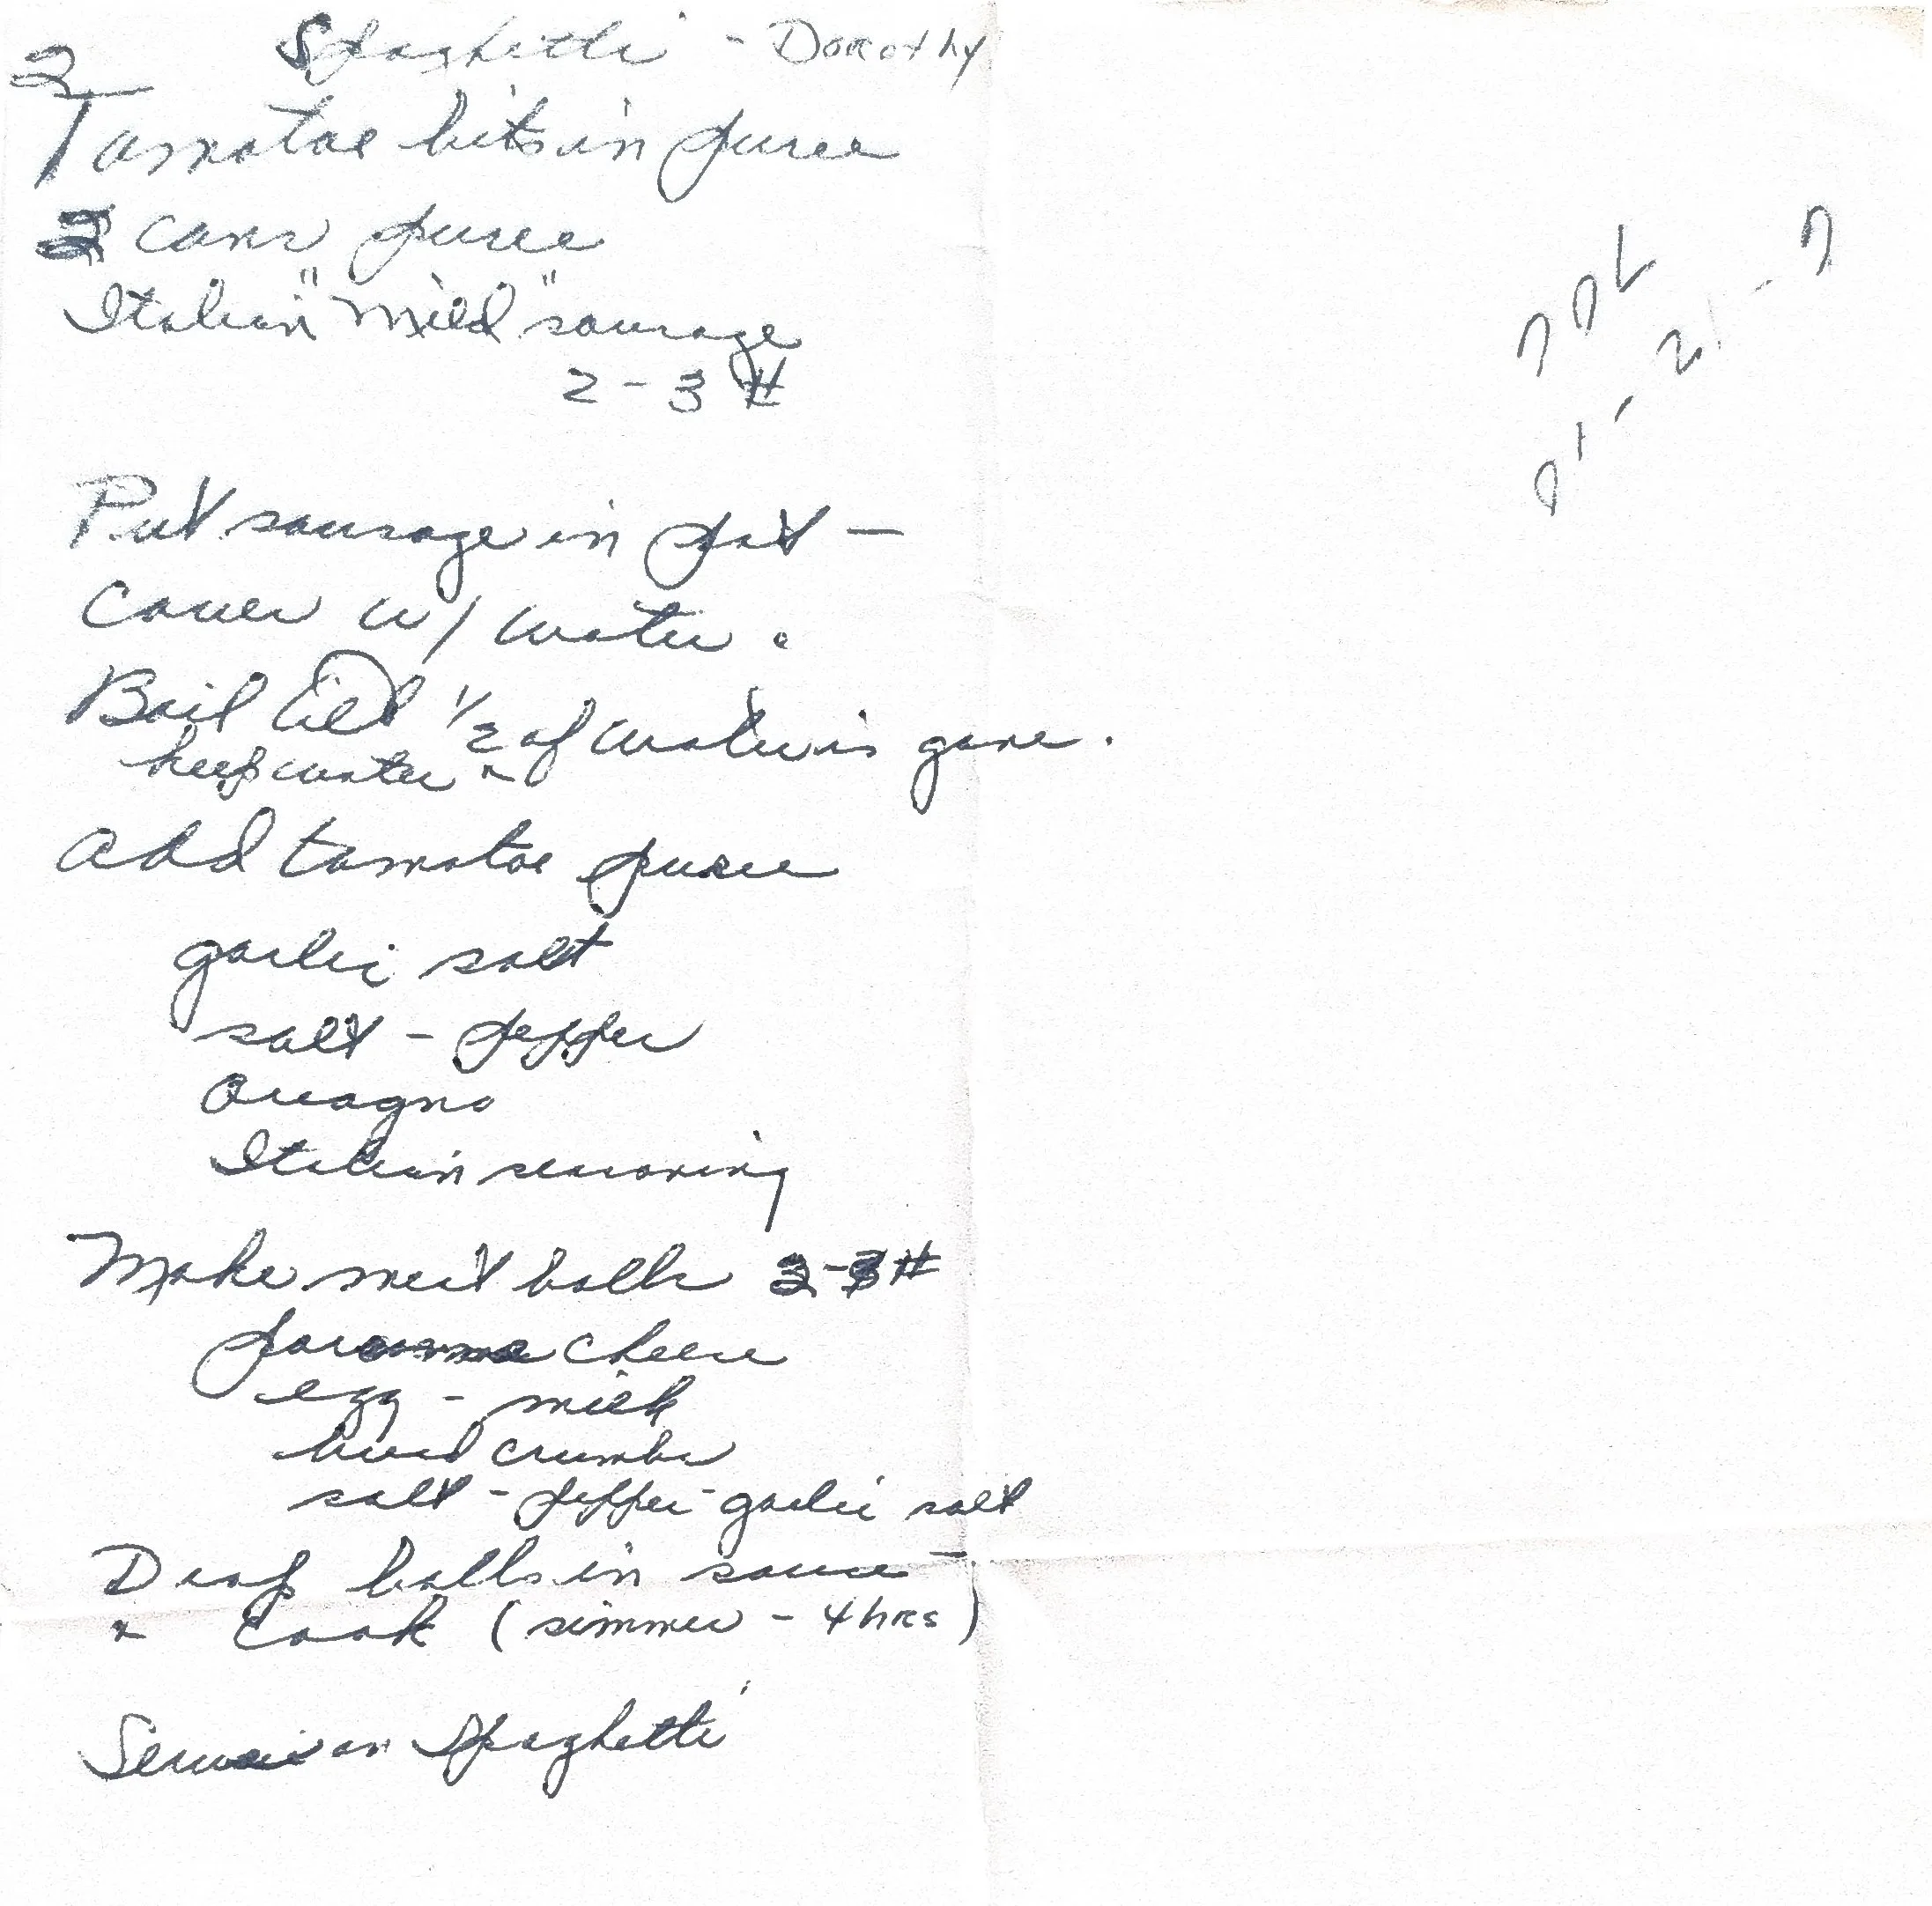 Spaghetti - Dorothy
2
Tomatoe bits in puree
2 cans puree
Italian "Mild" sausage
2 - 3 #
Put sausage in pot —
Cover w/ water.
Boil till 1/2 of water is gone.
keep water
Add tomatoe puree
garlic salt
salt - pepper
Oreagno
Italian seasoning
Make meat balls 2-3 #
cheese
egg - milk
bread crumbs
salt - pepper - garlic salt
Drop balls in sauce —
" Cook (simmer - 4 hrs)
on Spaghetti